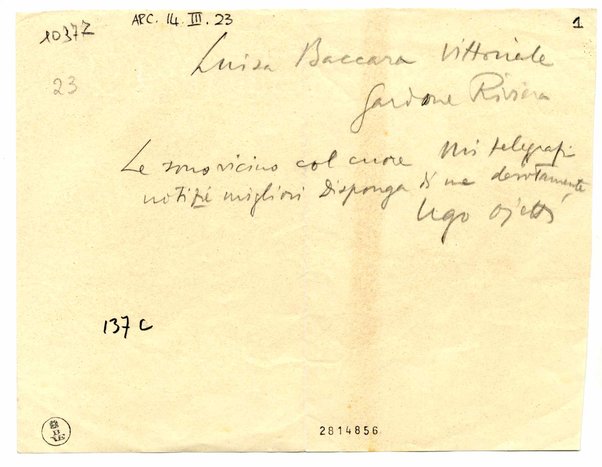 10372
APC. 14. III. 23
1
23
Luisa Baccara Vittoriale
Gardone Riviera
Le sono vicino col cuore Mi telegrafi
notizie migliori Disponga di me devotamente
Ugo Ojetti
137 C
2814856